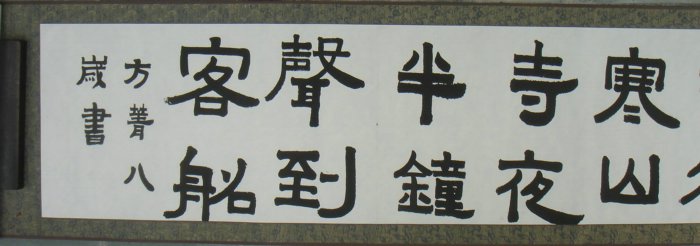 寒山
寺夜
半鐘
聲到
客船
方菁八
嵗書